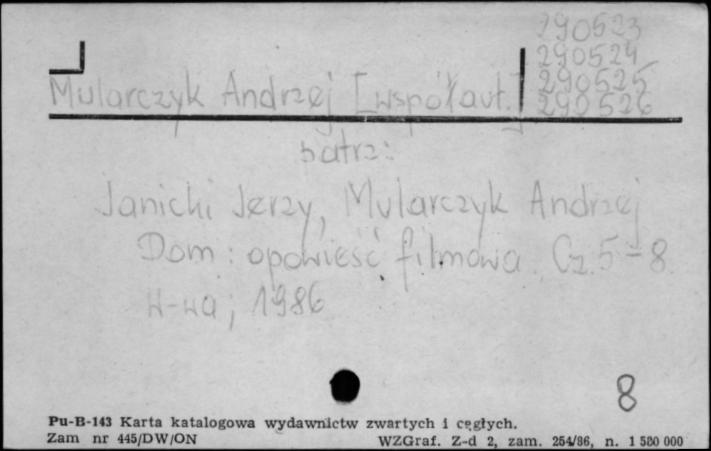 290523
290524
290525
290526
Mularczyk Andrzej [współaut.]
patrz:
Janicki Jerzy, Mularczyk Andrzej
Dom : opowieść filmowa. Cz. 5-8.
W-wa, 1986
8
Pu-B-143 Karta katalogowa wydawnictw zwartych i cęgłych.
Zam nr 445/DW/ON WZGraf. Z-d 2, zam. 254/86, n. 1 580 000